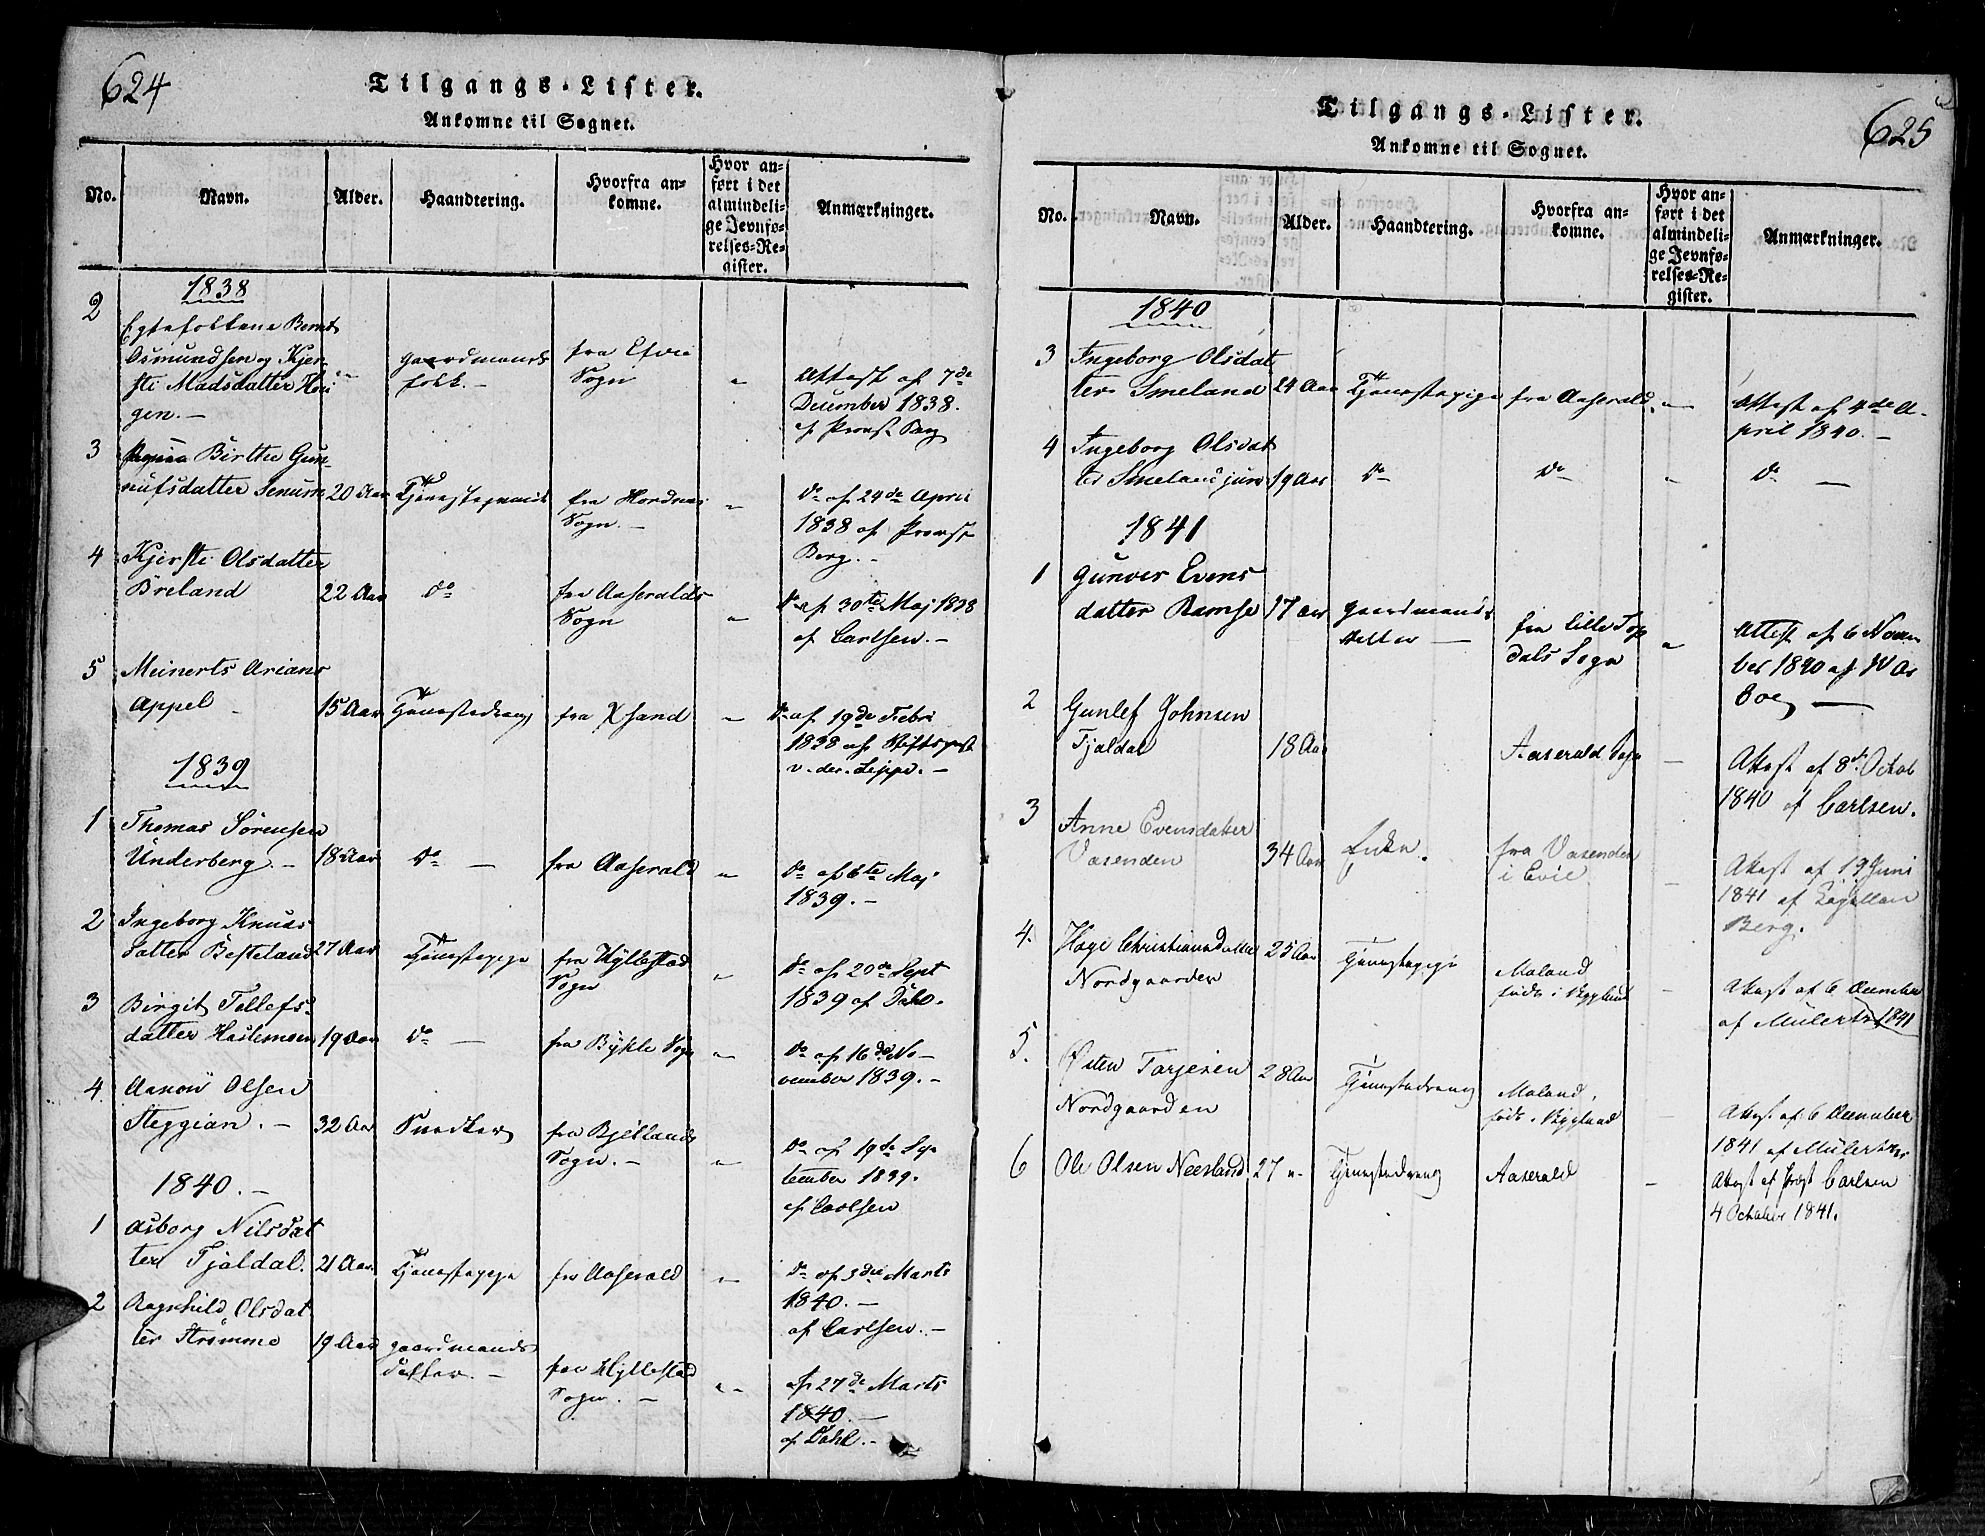 624
Tilgangs-Lister.
Ankomne til Sognet.
No.
Navn.
Alder.
Haandtering.
Hvorfra an-
komne.
Hvor an-
ført i det
almindeli-
ge Jevnfø-
relses-Re-
gister.
Anmærkninger.
1838
2
Egtefolkene Bernt
Osmundsen og Kjer-
sti Madsdatter
gen. -
gaardmands
folk. -
fra
Sogn
"
Attest af 7de
December 1838.
af Provst Berg
3
Birthe Gun-
nufsdatter Senum
20 Aar
fra Hordnæs
Sogn. -
"
do af 24de April
1838 af Provst
Berg. -
4
Kjersti Olsdatter
Breland
22 Aar
do
fra Aaseralds
Sogn
"
do af 30te Maj 1838
af Carlsen. -
5
Meinerts Arians
Appel -
15 Aar
Tjenestedreng
fra Xsand
"
do af 19de Febr
1838 af Stiftsprost
v. der. Lippe. -
1839
1
Thomas Sørensen
Underberg. -
18 Aar
do -
fra Aaserald
"
do af 6te Maj
1839. -
2
Ingeborg Knuds
datter Besteland
27 Aar
Tjenestepige
fra Hyllestad
Sogn
"
do af 20de Sept
1839 af Dahl.
3
Birgit Tellefs-
datter Haslemoen
19 Aar
do -
fra Bykle Sogn
"
do af 16de No-
vember 1839. -
4
Olsen
Steggian. -
32 Aar
Snedker
fra Bjellands
Sogn. -
"
do af 19de Sep
tember 1839.
af Carlsen
1840. -
1
Asborg Nilsdat
ter Tjaldal.
21 Aar
Tjenestepige
fra Aaserald
"
do af 3die Marts
1840. -
af Carlsen. -
2
Ragnhild Olsdat
ter Strømme
19 Aar
gaardmands
datter. -
fra Hyllestad
Sogn. -
"
af 27de Marts
1840. -
af Dahl. -
625
Tilgangs-Lister.
Ankomne til Sognet.
No.
Navn.
Alder.
Haandtering.
Hvorfra an-
komne.
Hvor an-
ført i det
almindeli-
ge Jevnfø-
relses-Re-
gister.
Anmærkninger.
1840
3
Ingeborg Olsdat
ter Smeland
24 Aar
Tjenestepige
fra Aaserald.
"
Attest af 4de A-
pril 1840. -
4
Ingeborg Olsdat
ter Smeland jun
19 Aar
do
do
"
do -
1841
1
Gunver Evens
datter Ramse
17 aar
gaardmands
datter -
fra Lille Top
dals Sogn
"
Attest af 6 Novem
ber 1840 af
-
2
Gunlef Johnsen
Tjaldal
18 Aar
Aaserald Sogn
-
Attest af 8de Octob
1840 af Carlsen.
3
Anne Evensdatter
Vasenden
34 Aar
Enke.
fra Vasenden
i Evie
-
Attest af 19 Juni
1841 af Capellan
Berg.
4.
Hage Christiansdatter
Nordgaarden
25 Aar
Tjenestepige
Moland
født i Bygland
-
Attest af 6 December
af Mülertz 1841
5.
Østen Tarjesen
Nordgaarden
28 Aar
Tjenestedreng
Moland,
født i Bygland
-
Attest af 6 December
1841 af Mülertz
6
Ole Olsen Neesland
27 "
Tjenestedreng
Aaserald
-
Attest af Prost Carlsen
4 October 1841.